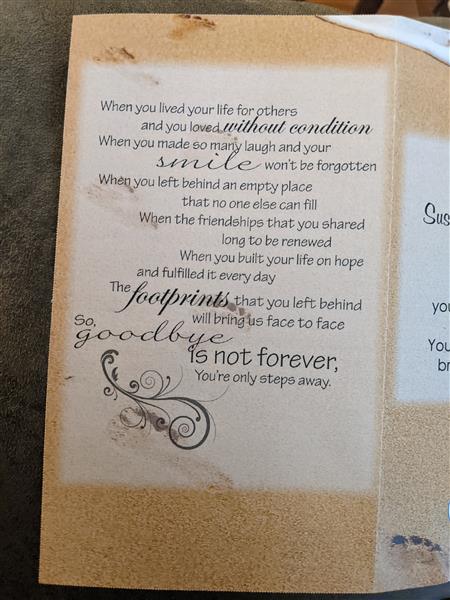 When you lived your life for others
and you loved without condition
When you made so many laugh and your
smile won't be forgotten
When you left behind an empty place
that no one else can fill
When the friendships that you shared
long to be renewed
When you built your life on hope
and fulfilled it every day
The footprints that you left behind
will bring us face to face
So,
goodbye
is not forever,
You're only steps away.
Sus
you
You
br